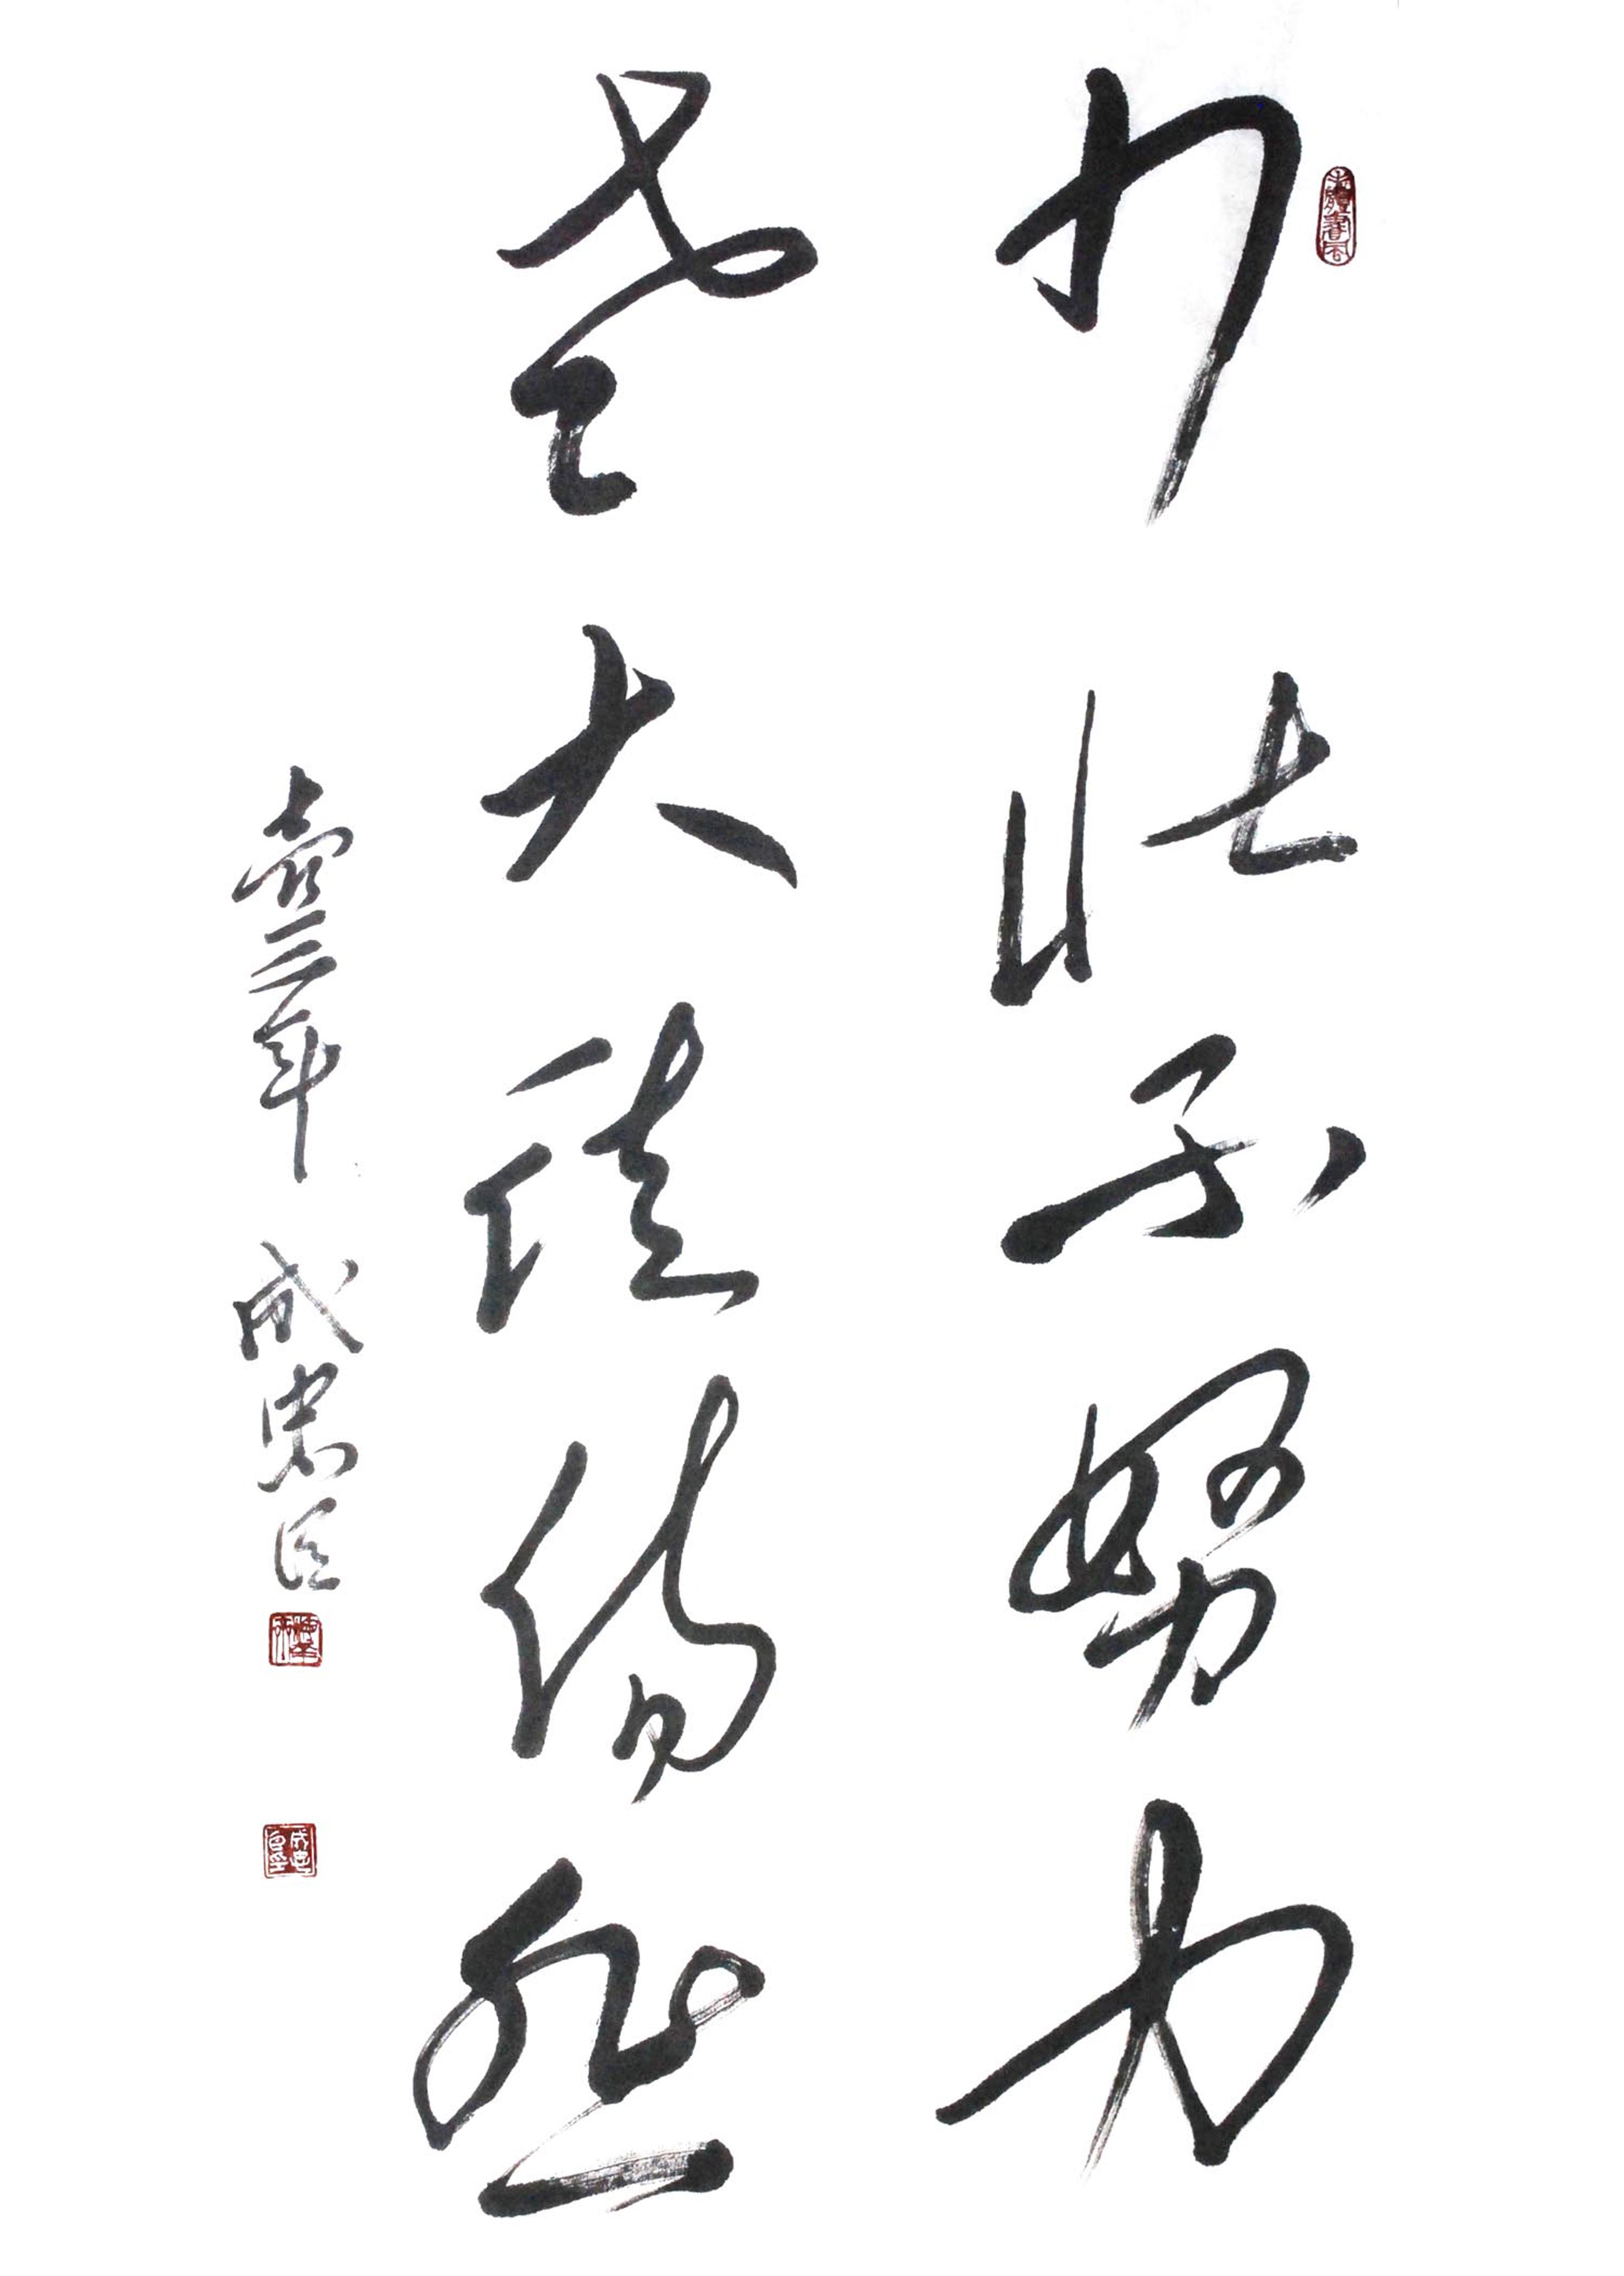 少壮不努力
老大徒伤悲
壹三年 成忠臣